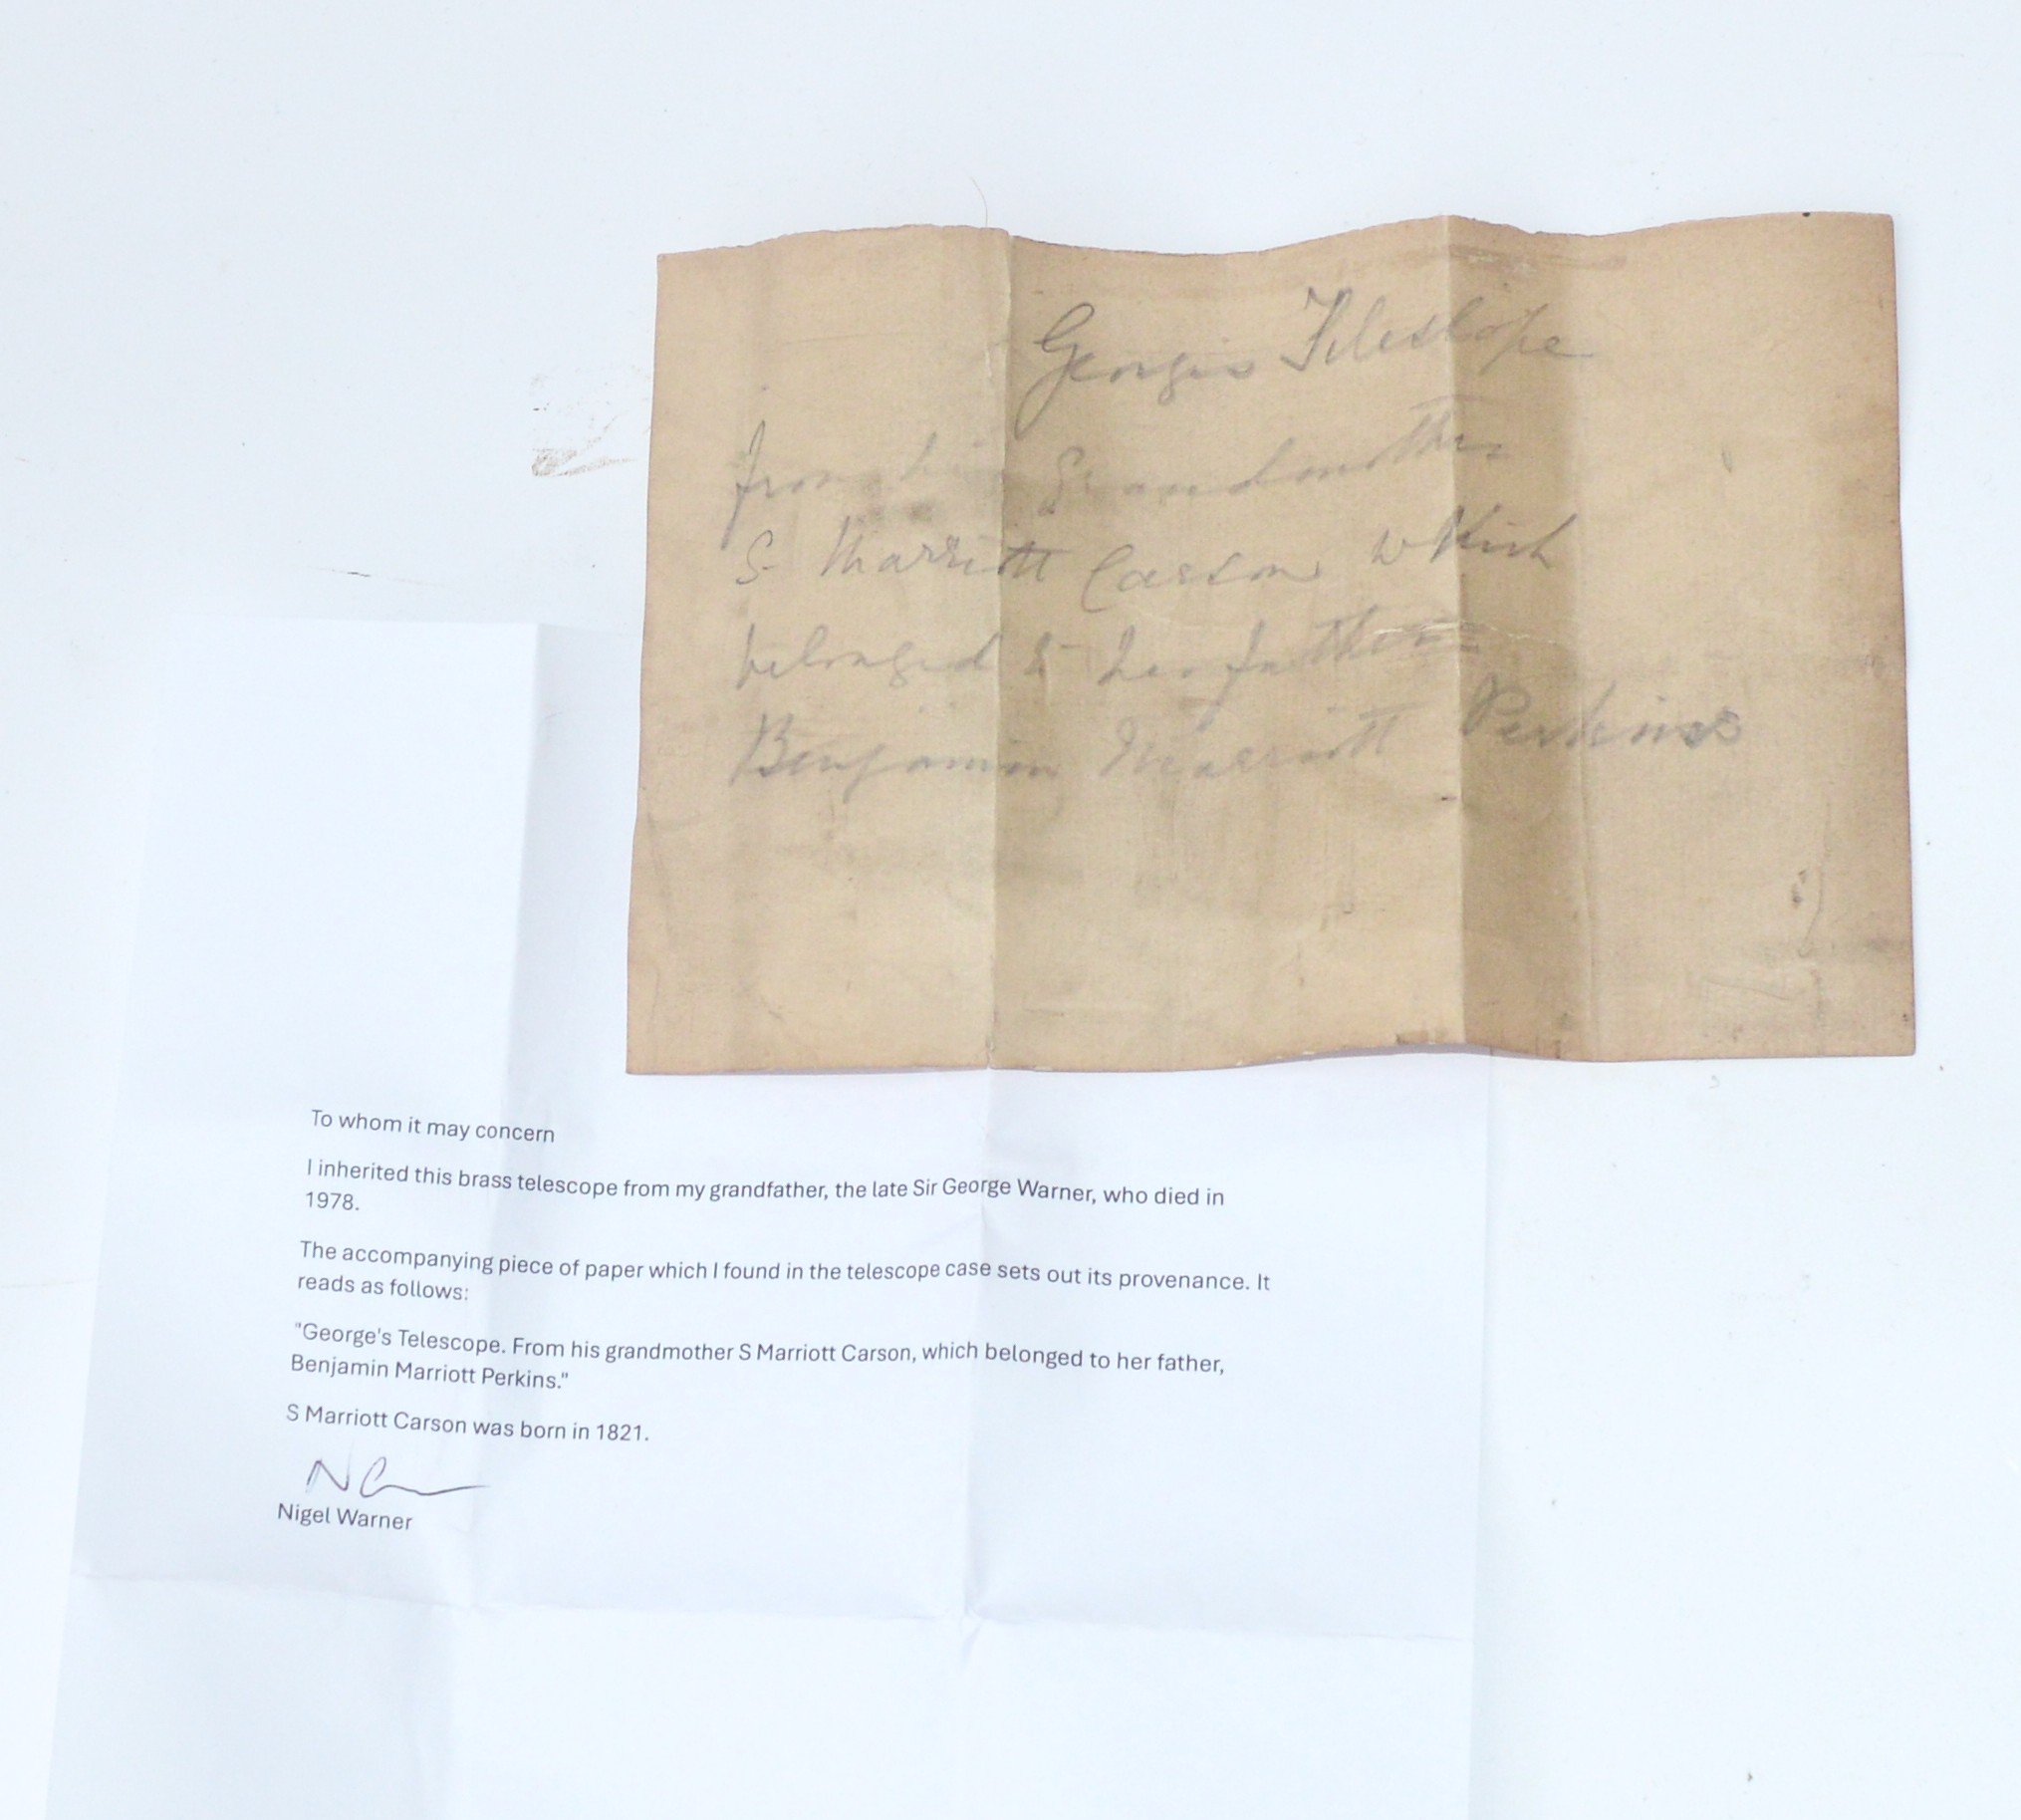 Georges Telescope
from his Grandmother
S Marriott Carson which
belonged to her father
Benjamin Marriott Perkins
To whom it may concern
I inherited this brass telescope from my grandfather, the late Sir George Warner, who died in
1978.
The accompanying piece of paper which I found in the telescope case sets out its provenance. It
reads as follows:
"George's Telescope. From his grandmother S Marriott Carson, which belonged to her father,
Benjamin Marriott Perkins."
S Marriott Carson was born in 1821.
Nigel Warner